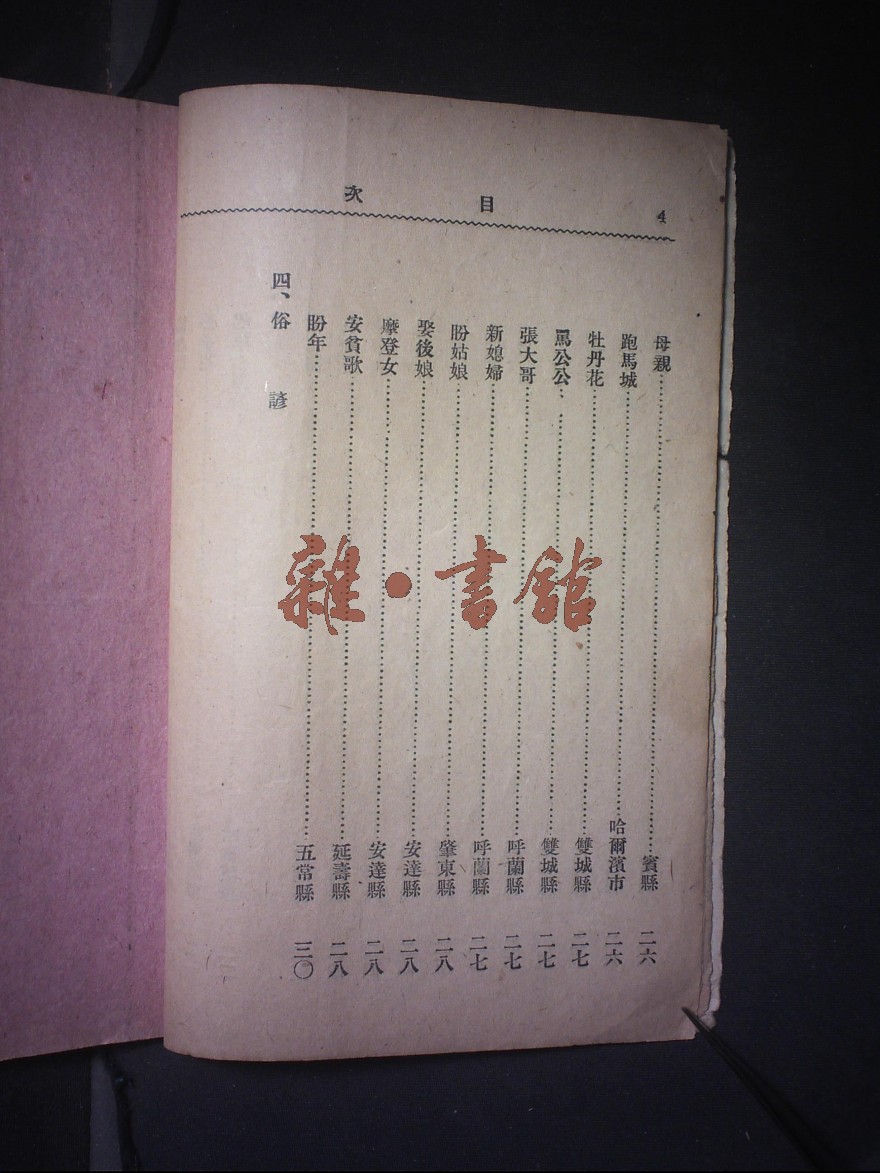 4 目次
母親……賓縣 二六
跑馬城……哈爾濱市 二六
牡丹花……雙城縣 二七
罵公公……雙城縣 二七
張大哥……呼蘭縣 二七
新媳婦……呼蘭縣 二七
盼姑娘……肇東縣 二八
娶後娘……安達縣 二八
摩登女……安達縣 二八
安貧歌……延壽縣 二八
盼年……五常縣 三〇
四、俗諺
雜·書館